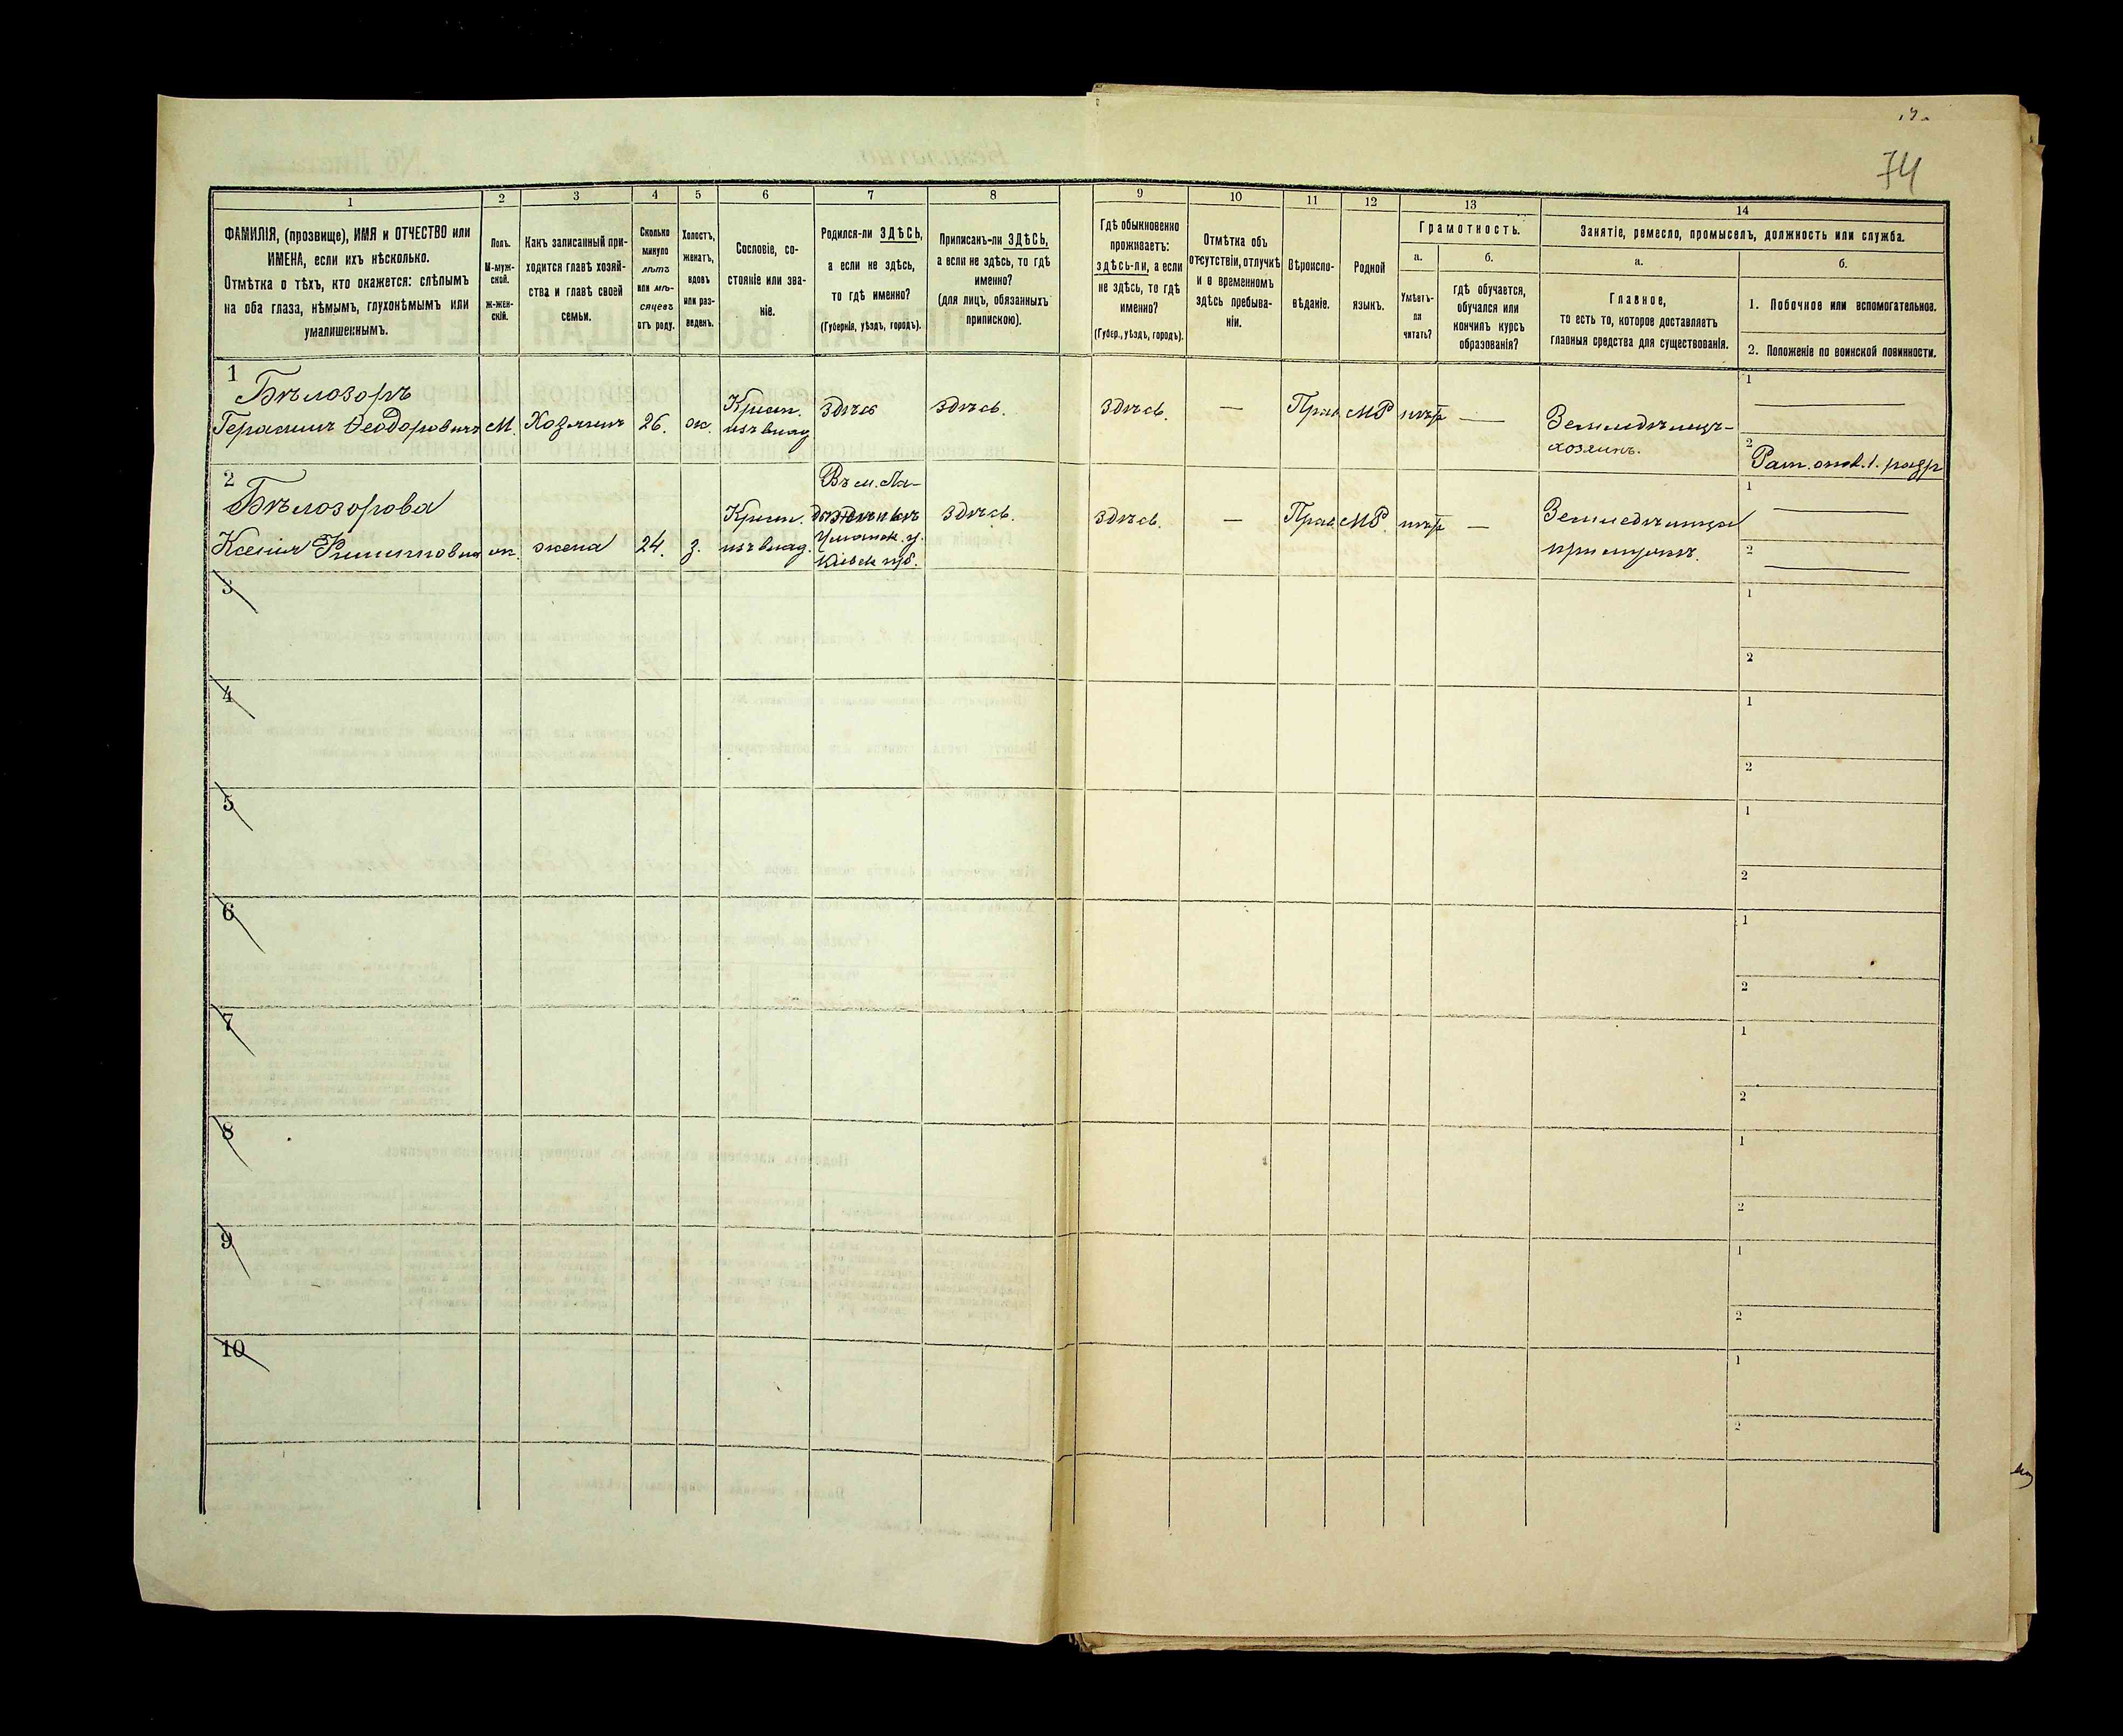 74
1
ФАМИЛІЯ, (прозвище), ИМЯ и ОТЧЕСТВО или
ИМЕНА, если ихъ нѣсколько.
Отмѣтка о тѣхъ, кто окажется: слѣпымъ
на оба глаза, нѣмымъ, глухонѣмымъ или
умалишеннымъ.
2
Полъ.
М-муж-
ской.
ж-жен-
скій.
3
Какъ записанный при-
ходится главѣ хозяй-
ства и главѣ своей
семьи.
4
Сколько
минуло
лѣтъ
или мѣ-
сяцевъ
отъ роду.
5
Холостъ,
женатъ,
вдовъ
или раз-
веденъ.
6
Сословіе, со-
стояніе или зва-
ніе.
7
Родился-ли ЗДѢСЬ,
а если не здѣсь,
то гдѣ именно?
(Губернія, уѣздъ, городъ).
8
Приписанъ-ли ЗДѢСЬ,
а если не здѣсь, то гдѣ
именно?
(для лицъ, обязанныхъ
припискою).
9
Гдѣ обыкновенно
проживаетъ:
здѣсь-ли, а если
не здѣсь, то гдѣ
именно?
(Губер., уѣздъ, городъ).
10
Отмѣтка объ
отсутствіи, отлучкѣ
и о временномъ
здѣсь пребыва-
ніи.
11
Вѣроиспо-
вѣданіе.
12
Родной
языкъ.
13
Грамотность.
а.
Умѣетъ-
ли
читать?
б.
гдѣ обучается,
обучался или
кончилъ курсъ
образованія?
14
Занятіе, ремесло, промыселъ, должность или служба.
а.
Главное,
то есть то, которое доставляетъ
главныя средства для существованія.
б.
1. Побочное или вспомогательное.
2. Положеніе по воинской повинности.
1
Бѣлозоръ
Герасимъ Ѳеодоровичъ
М.
Хозяинъ
26.
ж.
Крест.
изъ влад.
здѣсь
здѣсь.
здѣсь.
—
Прав.
МР
нѣтъ
—
Земледѣлецъ-
хозяинъ.
1
2
Рат. опол. 1. разр
2
Бѣлозорова
Ксенія Филипповна
ж.
жена
24.
з.
Крест.
изъ влад.
Въ м. Ла-
дыжинкѣ
Уманск. у.
Кіевск. губ.
здѣсь.
здѣсь.
—
Прав.
МР.
нѣтъ
—
Земледѣлица
при мужѣ.
1
2
3
1
2
4
1
2
5
1
2
6
1
2
7
1
2
8
1
2
9
1
2
10
1
2